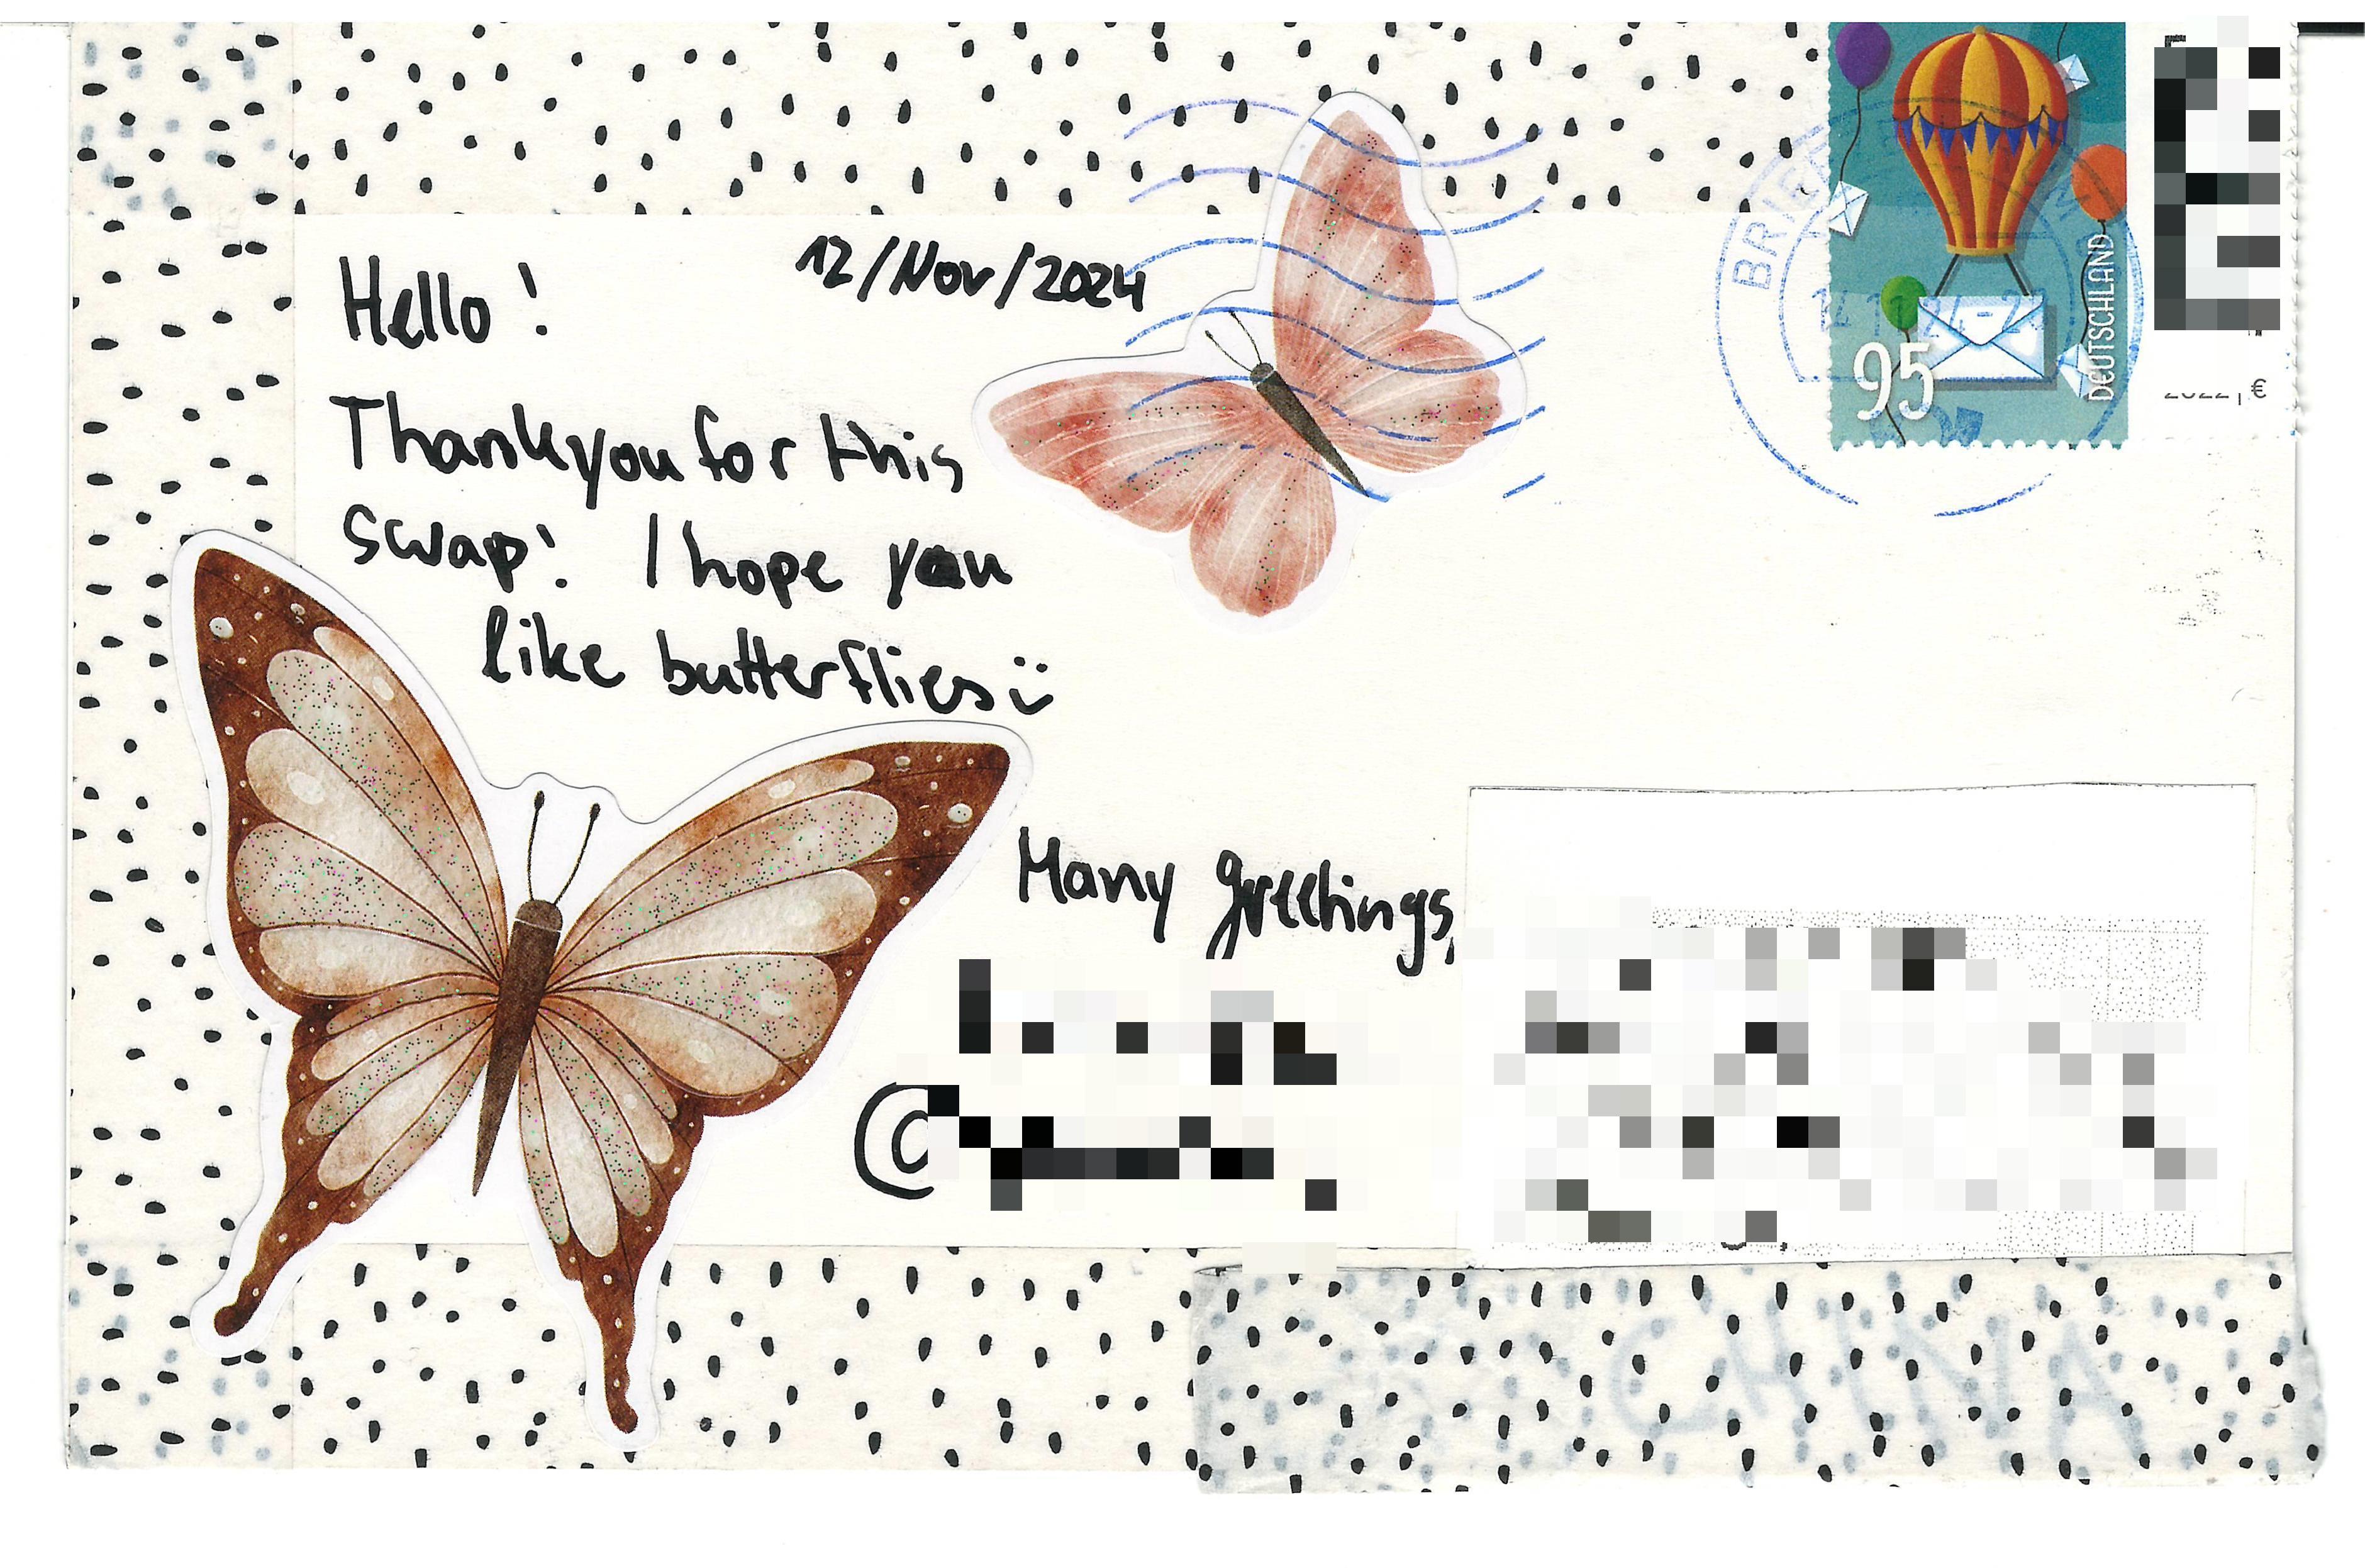 12/Nov/2024
Hello!
Thank you for this
swap! I hope you
like butterflies
Many greetings,
95
DEUTSCHLAND
BRIEF
CHINA